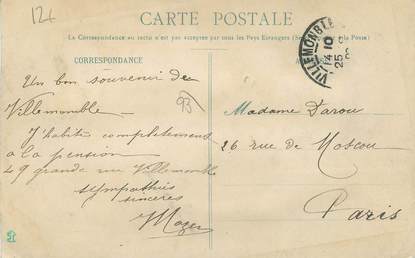 124
CARTE POSTALE
La Correspondance au recto n'est pas acceptée par tous les Pays Etrangers (Se la Poste)
CORRESPONDANCE
VILLEMOMBLE
14 10
25
Un bon souvenir de
Villemomble
93
J'habite complètement
a la pension
49 grande rue Villemomble
sympathies
sincères
Madame Darou
26 rue de Moscou
Paris